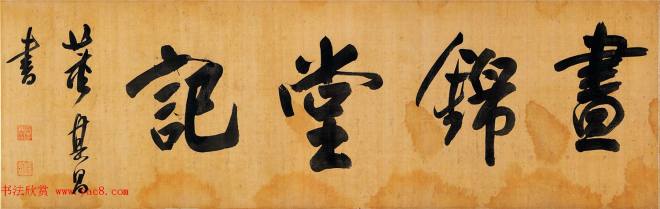 晝錦堂記
董其昌
書
书法欣赏 www.yac8.com